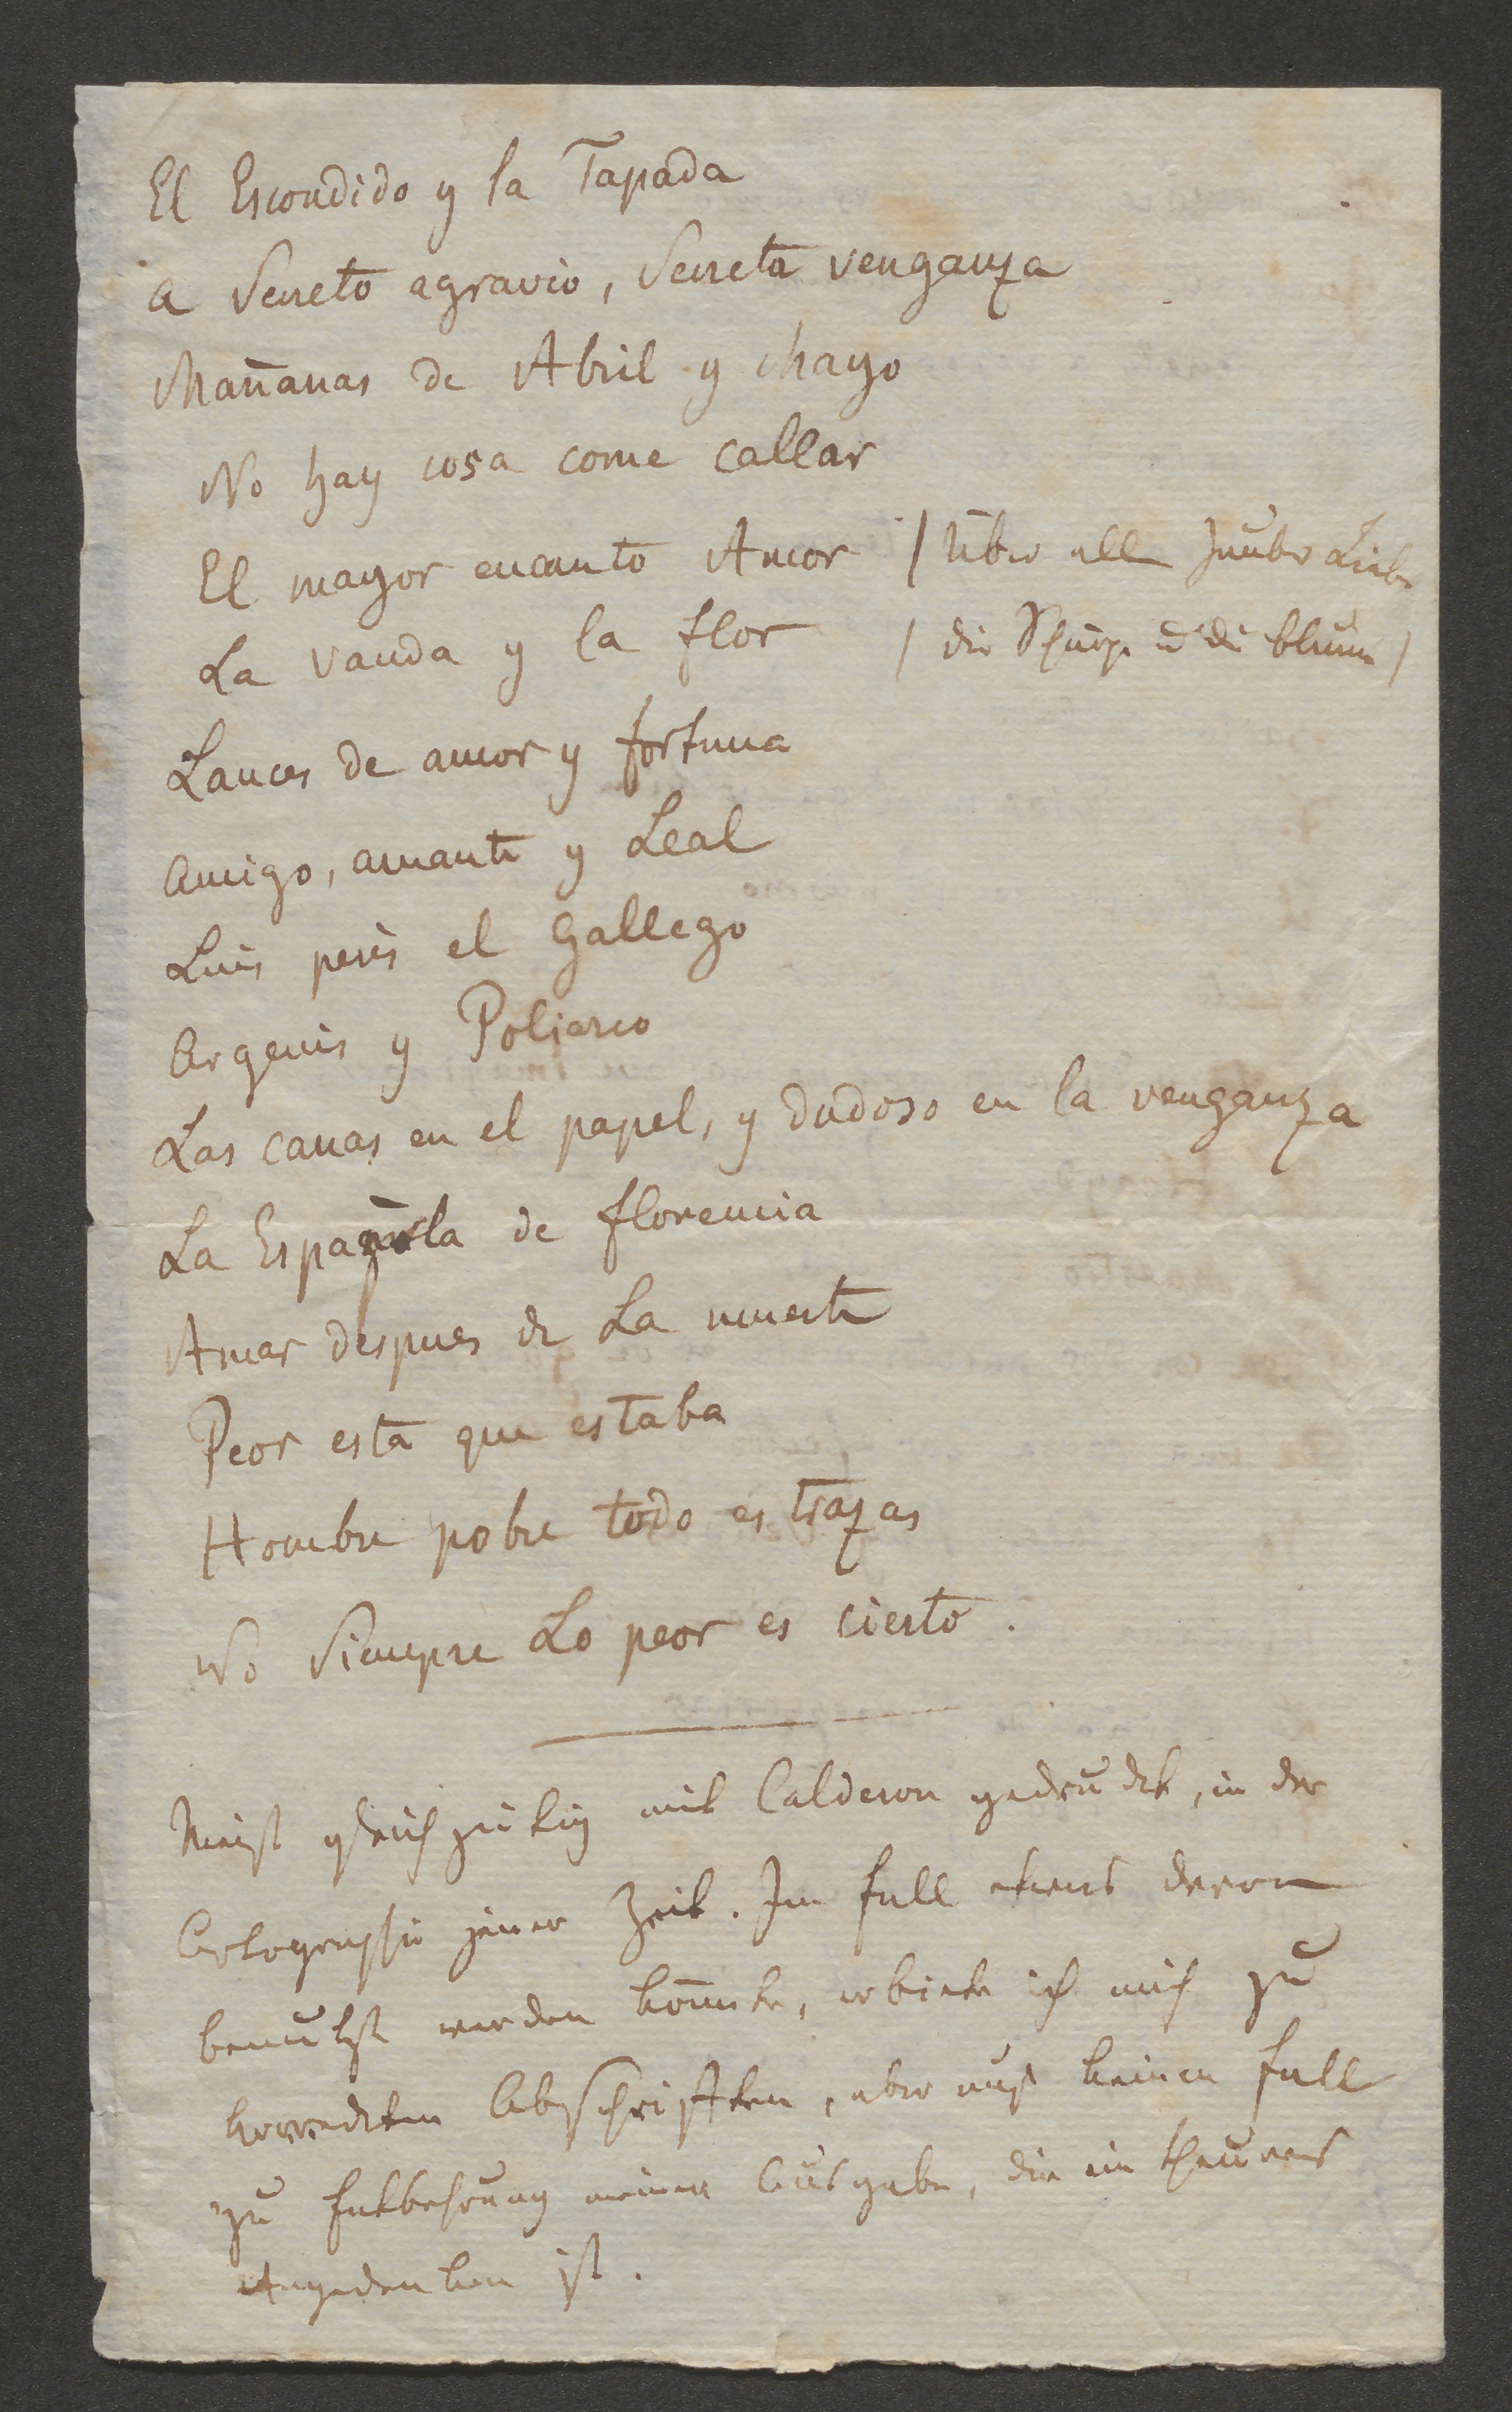 El Escondido y la Tapada
a Secreto agravio, Secreta venganza
Mañanas de Abril y Mayo
No hay cosa come callar
El mayor encanto Amor / Über allen Zauber Liebe
La vanda y la flor / die Schärpe u die Blume /
Lances de amor y fortuna
Amigo, amante y Leal
Luis peris el Gallego
Argenis y Poliarco
Las canas en el papel, y dudoso en la venganza
La Española de florencia
Amar despues de La muerte
Peor està que estaba
Hombre pobre todo es trazas
No Siempre Lo peor es cierto.
Meist gleichzeitig mit Calderon gedruckt, in der
Ortographie jener Zeit. Im fall etwas davon
benutzt werden könnte, erbiete ich mich zu
korrekten Abschriften, aber auf keinen fall
zu Entbehrung meiner Ausgabe, die ein theures
Angedenken ist.